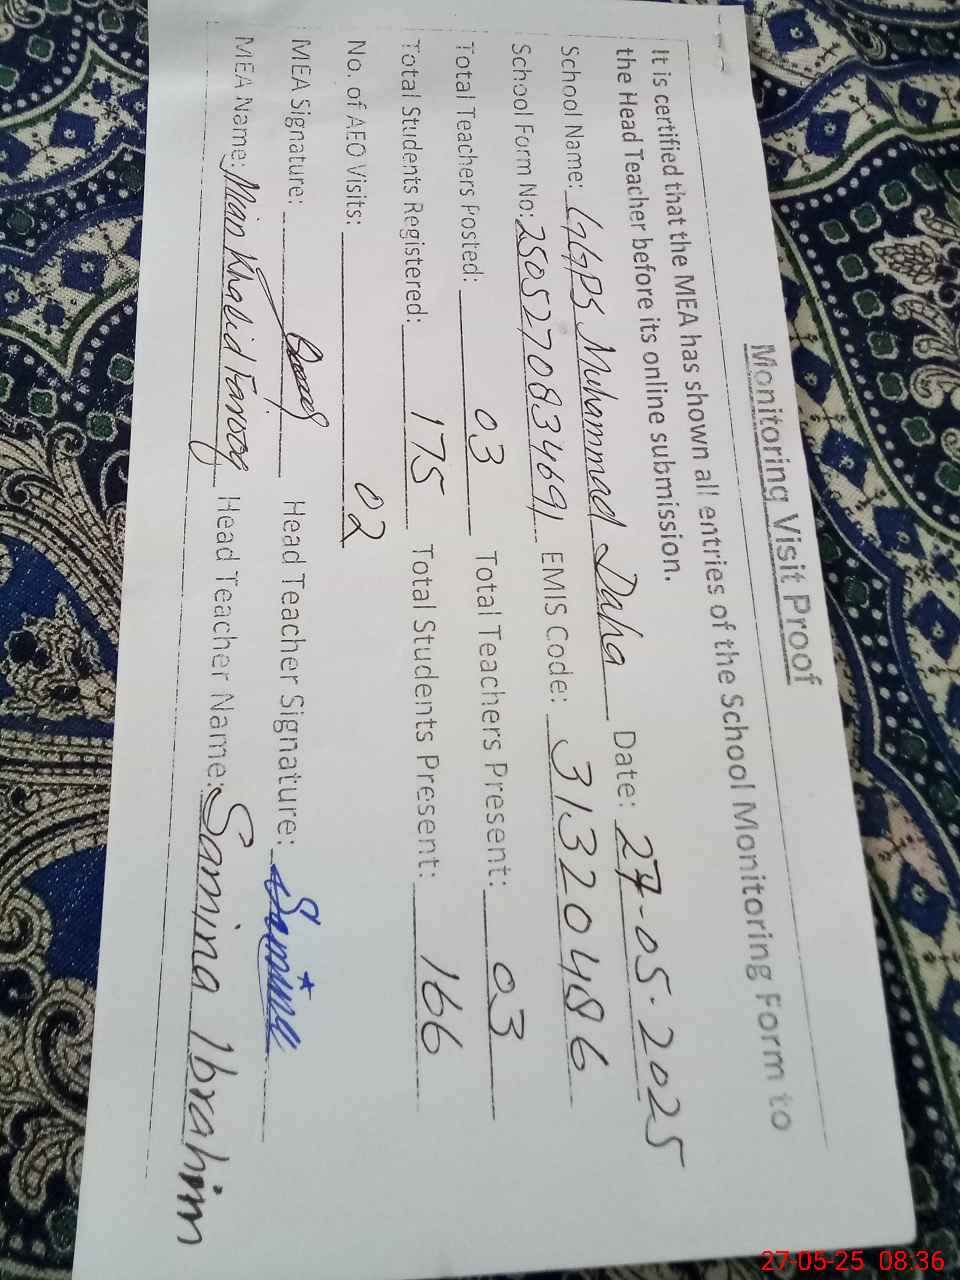 Monitoring Visit Proof
It is certified that the MEA has shown all entries of the School Monitoring Form to
the Head Teacher before its online submission.
School Name: GGPS Muhammad Daha Date: 27-05-2025
School Form No: 2505270834691 EMIS Code: 31320486
Total Teachers Posted: 03 Total Teachers Present: 03
Total Students Registered: 175 Total Students Present: 166
No. of AEO Visits: 02
MEA Signature: Head Teacher Signature: Samina
MEA Name: Main Khalid Farooq Head Teacher Name: Samina Ibrahim
27-05-25 08:36